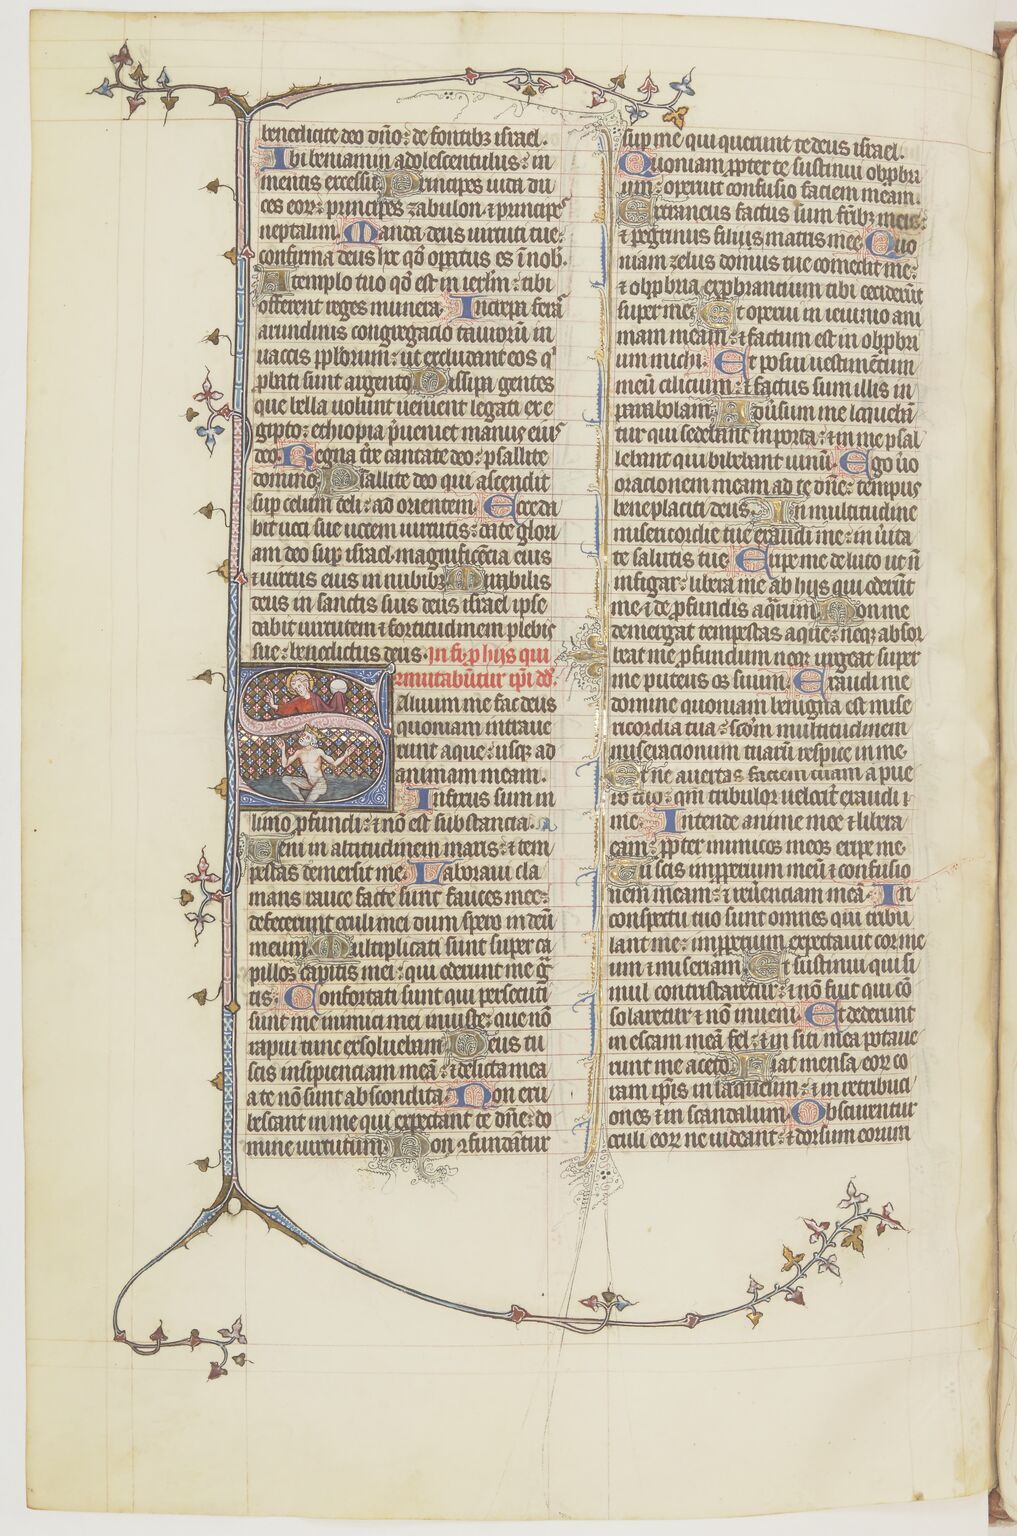 benedicite deo dño: de fontibꝫ israel.
Ibi beniamin adolescentulus: in
mentis excessu. Principes iuda du
ces eorꝝ: principes zabulon ⁊ principes
neptalim. Manda deus uirtuti tue:
confirma deus hoc qđ opatus es ĩ nob.
A templo tuo qđ est in ierłm: tibi
offerent reges munera. Increpa feras
arundinis congregacio tauroꝝ in
uaccis pplorum: ut excludant eos qⁱ
pbati sunt argento. Dissipa gentes
que bella uolunt uenient legati ex e
gipto: ethiopia pueniet manus eius
deo. Regna tre cantate deo: psallite
domino. Psallite deo qui ascendit
sup celum celi: ad orientem. Ecce da
bit uoci sue uocem uirtutis: date glori
am deo sup israel magnificẽcia eius
⁊ uirtus eius in nubibꝫ. Mirabilis
deus in sanctis suis deus israel ipse
dabit uirtutem ⁊ fortitudinem plebis
sue: benedictus deus. In fi. p hijs qui
ꝯmutabũtur
Saluum me fac deus
quoniam intraue
runt aque: usqꝫ ad
animam meam.
Infixus sum in
limo pfundi: ⁊ nõ est substancia.
Ueni in altitudinem maris: ⁊ tem
pestas demersit me. Laboraui cla
mans rauce facte sunt fauces mee:
defecerunt oculi mei dum spero in deũ
meum. Multiplicati sunt super ca
pillos capitis mei: qui oderunt me gͣ
tis. Confortati sunt qui persecuti
sunt me inimici mei iniuste: que nõ
rapui tunc exsoluebam. Deus tu
scis insipienciam meã: ⁊ delicta mea
a te nõ sunt abscondita. Non eru
bescant in me qui expectant te dñe: do
mine uirtutum. Non ꝯfundãtur
sup me qui querunt te deus israel.
Quoniam ppter te sustinui obpbri
um: operuit confusio faciem meam.
Extraneus factus sum frĩbꝫ meis:
⁊ pegrinus filijs matris mee. Quo
niam zelus domus tue comedit me:
⁊ obpbria exphrantium tibi ceciderũt
super me. Et operui in ieiunio ani
mam meam: ⁊ factum est in obpbri
um michi. Et posui uestimẽtum
meũ cilicium: ⁊ factus sum illis in
parabolam. Aduersum me loqueban
tur qui sedebant in porta: ⁊ in me psal
lebant qui bibebant uinũ. Ego uo
oracionem meam ad te dñe: tempus
beneplaciti deus. In multitudine
misericordie tue exaudi me: in ùita
te salutis tue. Eripe me de luto ut ñ
infigar: libera me ab hijs qui oderũt
me ⁊ de pfundis aqrum. Non me
demergat tempestas aque: neqꝫ absor
beat me pfundum neqꝫ urgeat super
me puteus os suum. Exaudi me
domine quoniam benigna est mise
ricordia tua: scõm multitudinem
miseracionum tuarũ respice in me.
Et ne auertas faciem tuam a pue
ro tuo: qm̃ tribulor uelocit̃ exaudi
me. Intende anime mee ⁊ libera
eam: ppter inimicos meos eripe me.
Tu scis impperium meũ ⁊ confusio
nem meam: ⁊ reuẽrenciam meã. In
conspectu tuo sunt omnes qui tribu
lant me: impperium expectauit cor me
um ⁊ miseriam. Et sustinui qui si
mul contristaretur: ⁊ nõ fuit qui cõ
solaretur ⁊ nõ inueni. Et dederunt
in escam meã fel: ⁊ in siti mea potaue
runt me aceto. Fiat mensa eorꝝ co
ram ip̃is in laqueum: ⁊ in retribuci
ones ⁊ in scandalum. Obscurentur
oculi eorꝝ ne uideant: ⁊ dorsum eorum